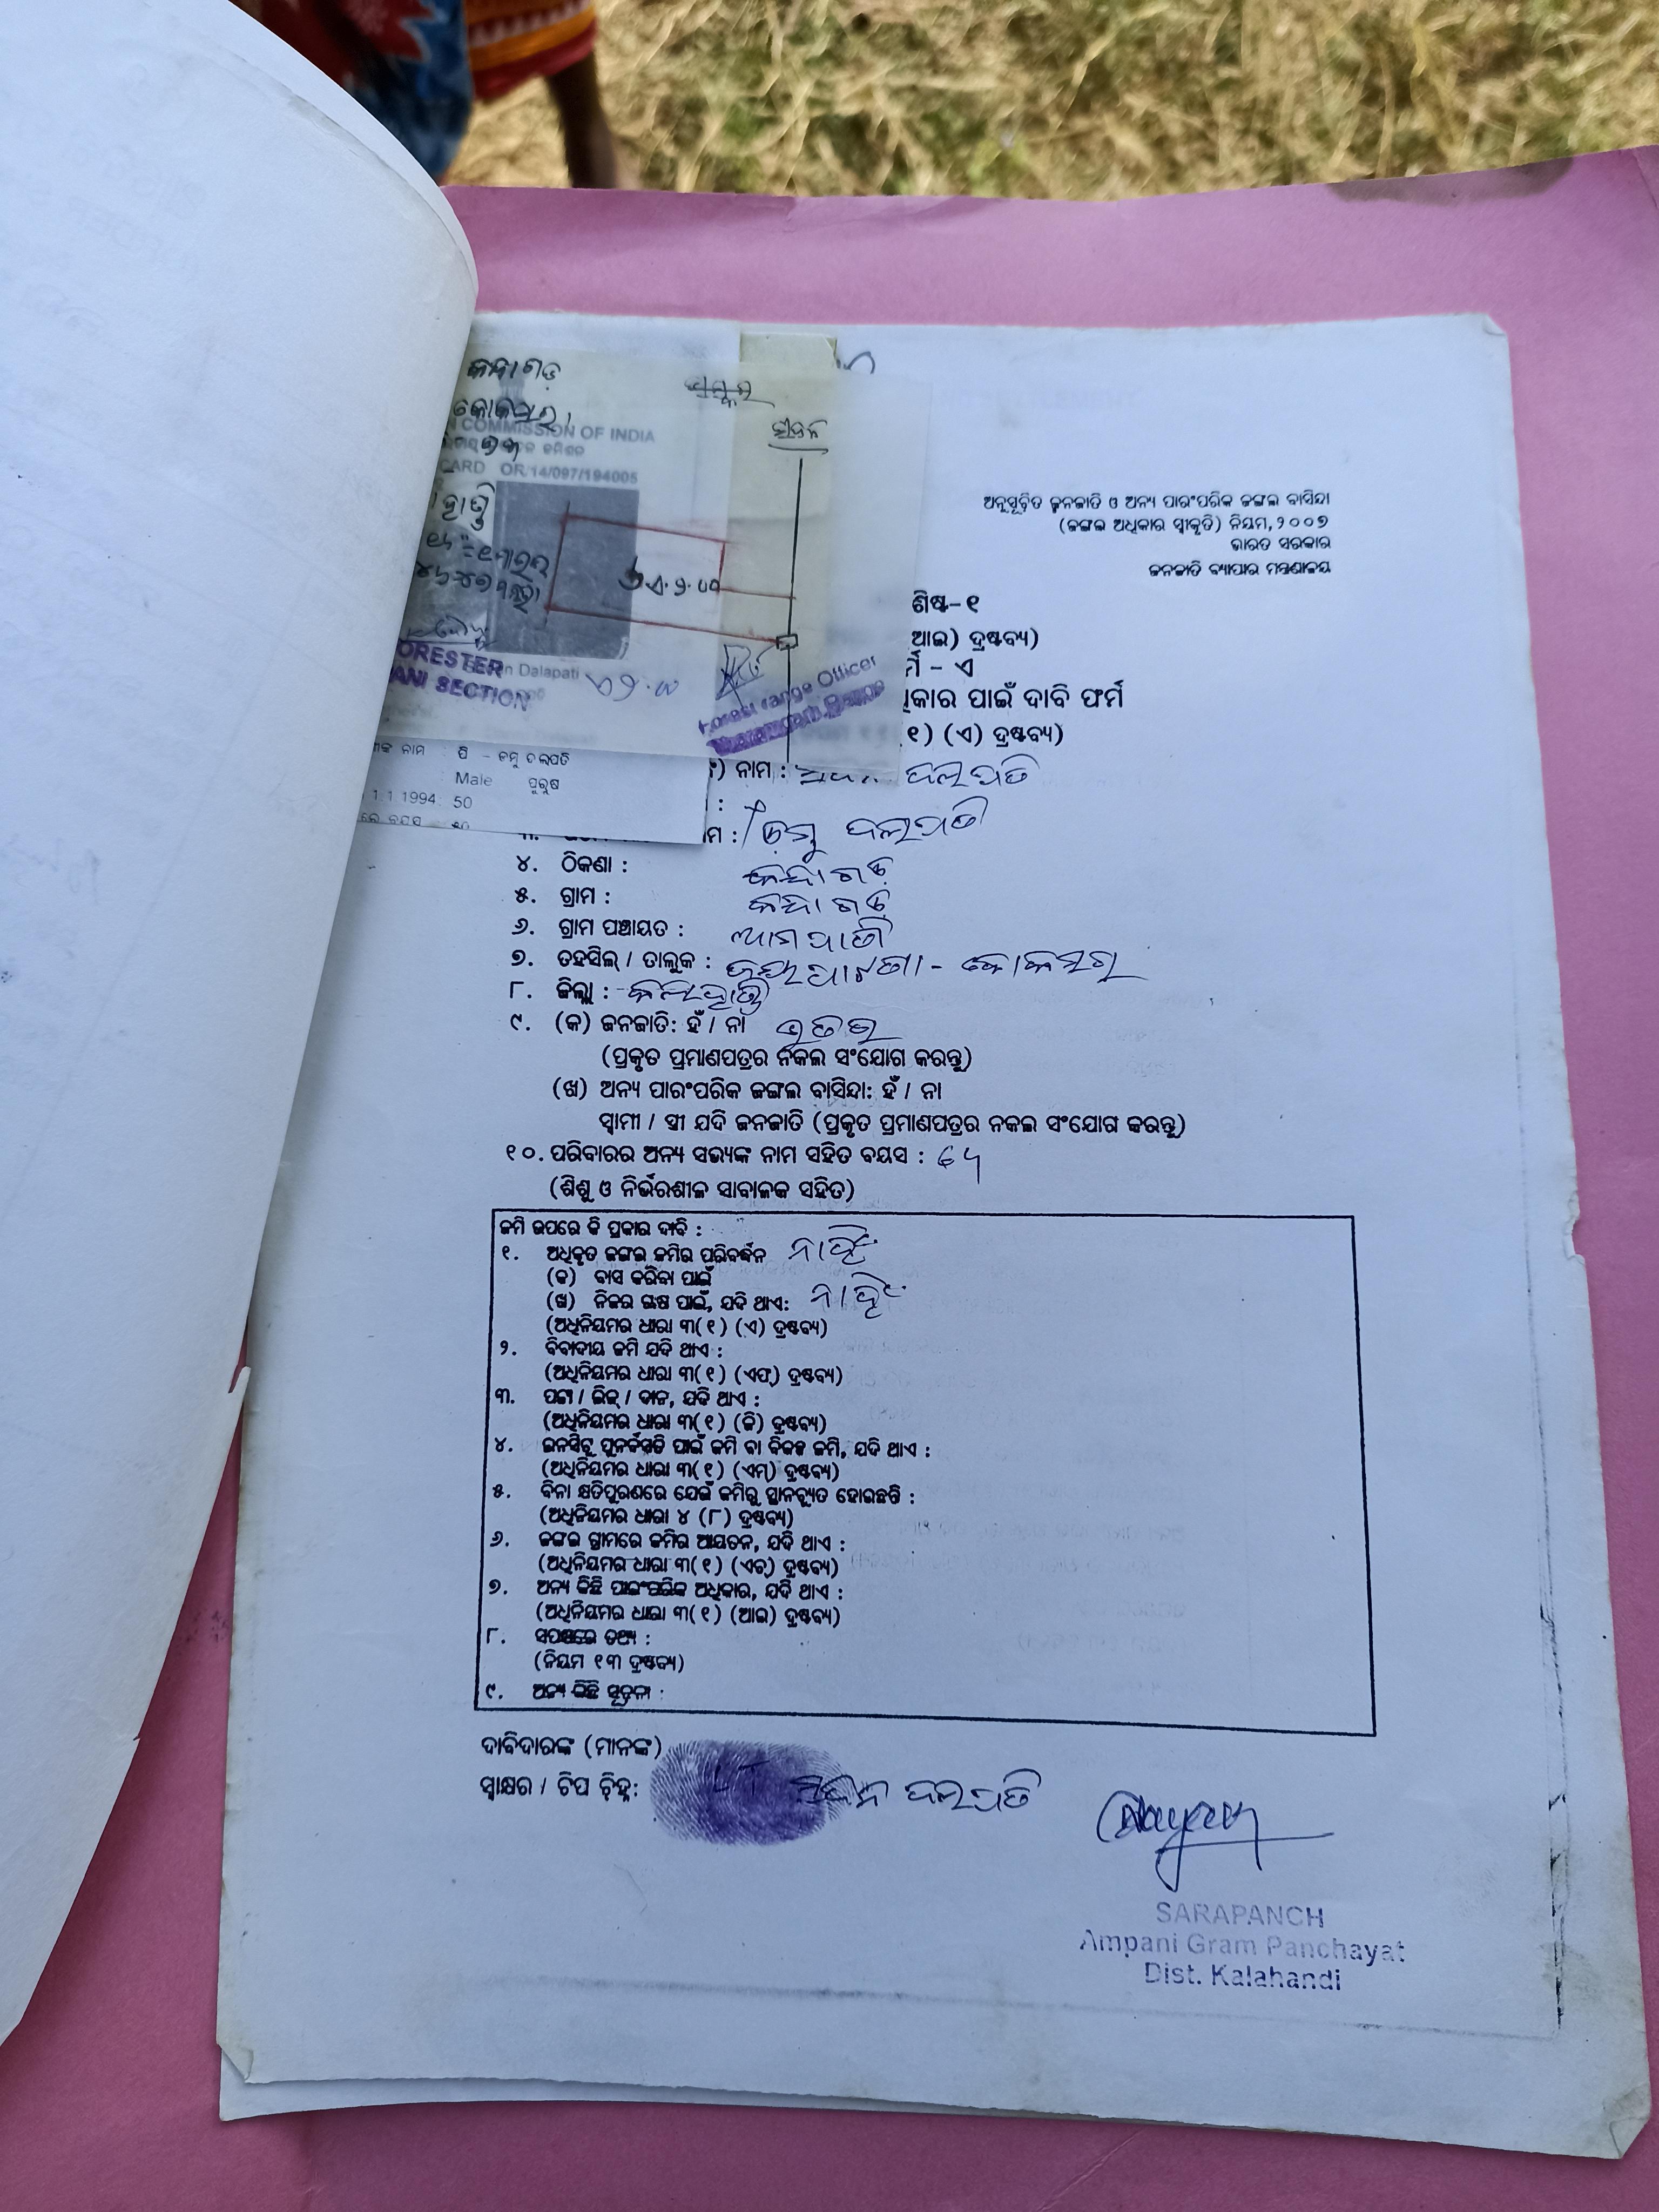 କନ୍ଧାଗଡ଼
କୋକସରା
COMMISSION OF INDIA
CARD OR/14/097/194005
ORESTER
ANI SECTION
n Dalapati
Forest Range Officer
ନାମ : ପି - ଡମୁ ଦଳପତି
Male ପୁରୁଷ
1.1.1994: 50
ଅନୁସୂଚିତ ଜନଜାତି ଓ ଅନ୍ୟ ପାରଂପରିକ ଜଙ୍ଗଲ ବାସିନ୍ଦା
(ଜଙ୍ଗଲ ଅଧିକାର ସ୍ୱୀକୃତି) ନିୟମ, ୨୦୦୭
ଭାରତ ସରକାର
ଜନଜାତି ବ୍ୟାପାର ମନ୍ତ୍ରଣାଳୟ
ଶିଷ୍ଟ-୧
ଆଇ) ଦ୍ରଷ୍ଟବ୍ୟ)
ର୍ମ - ଏ
ଧିକାର ପାଇଁ ଦାବି ଫର୍ମ
(୧) (ଏ) ଦ୍ରଷ୍ଟବ୍ୟ)
ନାମ : ଦଲପତି
ମ : ଡ଼ମୁ ଦଲପତି
୪. ଠିକଣା : କନ୍ଧାଗଡ଼
୫. ଗ୍ରାମ : କନ୍ଧାଗଡ଼
୬. ଗ୍ରାମ ପଞ୍ଚାୟତ : ଆମପାନୀ
୭. ତହସିଲ୍ / ତାଲୁକ : ଜୟପାଟଣା - କୋକସରା
୮. ଜିଲ୍ଲା : କଳାହାଣ୍ଡି
୯. (କ) ଜନଜାତି: ହଁ / ନା ଭତରା
(ପ୍ରକୃତ ପ୍ରମାଣପତ୍ରର ନକଲ ସଂଯୋଗ କରନ୍ତୁ)
(ଖ) ଅନ୍ୟ ପାରଂପରିକ ଜଙ୍ଗଲ ବାସିନ୍ଦା: ହଁ / ନା
ସ୍ୱାମୀ / ସ୍ତ୍ରୀ ଯଦି ଜନଜାତି (ପ୍ରକୃତ ପ୍ରମାଣପତ୍ରର ନକଲ ସଂଯୋଗ କରନ୍ତୁ)
୧୦. ପରିବାରର ଅନ୍ୟ ସଭ୍ୟଙ୍କ ନାମ ସହିତ ବୟସ :
(ଶିଶୁ ଓ ନିର୍ଭରଶୀଳ ସାବାଳକ ସହିତ)
ଜମି ଉପରେ କି ପ୍ରକାର ଦାବି :
୧. ଅଧିକୃତ ଜଙ୍ଗଲ ଜମିର ପରିବର୍ଦ୍ଧନ ନାହିଁ
(କ) ବାସ କରିବା ପାଇଁ
(ଖ) ନିଜର ଚାଷ ପାଇଁ, ଯଦି ଥାଏ: ନାହିଁ
(ଅଧିନିୟମର ଧାରା ୩(୧) (ଏ) ଦ୍ରଷ୍ଟବ୍ୟ)
୨. ବିବାଦୀୟ ଜମି ଯଦି ଥାଏ :
(ଅଧିନିୟମର ଧାରା ୩(୧) (ଏଫ୍) ଦ୍ରଷ୍ଟବ୍ୟ)
୩. ପଟ୍ଟା / ଲିଜ୍ / ଦାନ, ଯଦି ଥାଏ :
(ଅଧିନିୟମର ଧାରା ୩(୧) (ଜି) ଦ୍ରଷ୍ଟବ୍ୟ)
୪. ଇନସିଟୁ ପୁନର୍ବସତି ପାଇଁ ଜମି ବା ବିକଳ୍ପ ଜମି, ଯଦି ଥାଏ :
(ଅଧିନିୟମର ଧାରା ୩(୧) (ଏମ୍) ଦ୍ରଷ୍ଟବ୍ୟ)
୫. ବିନା କ୍ଷତିପୂରଣରେ ଯେଉଁ ଜମିରୁ ସ୍ଥାନଚ୍ୟୁତ ହୋଇଛନ୍ତି :
(ଅଧିନିୟମର ଧାରା ୪ (୮) ଦ୍ରଷ୍ଟବ୍ୟ)
୬. ଜଙ୍ଗଲ ଗ୍ରାମରେ ଜମିର ଆୟତନ, ଯଦି ଥାଏ :
(ଅଧିନିୟମର ଧାରା ୩(୧) (ଏଚ୍) ଦ୍ରଷ୍ଟବ୍ୟ)
୭. ଅନ୍ୟ କିଛି ପାରଂପରିକ ଅଧିକାର, ଯଦି ଥାଏ :
(ଅଧିନିୟମର ଧାରା ୩(୧) (ଆଇ) ଦ୍ରଷ୍ଟବ୍ୟ)
୮. ସପକ୍ଷରେ ତଥ୍ୟ :
(ନିୟମ ୧୩ ଦ୍ରଷ୍ଟବ୍ୟ)
୯. ଅନ୍ୟ କିଛି ସୂଚନା :
ଦାବିଦାରଙ୍କ (ମାନଙ୍କ)
ସ୍ୱାକ୍ଷର / ଟିପ ଚିହ୍ନ: ଦଲପତି
SARAPANCH
Ampani Gram Panchayat
Dist. Kalahandi